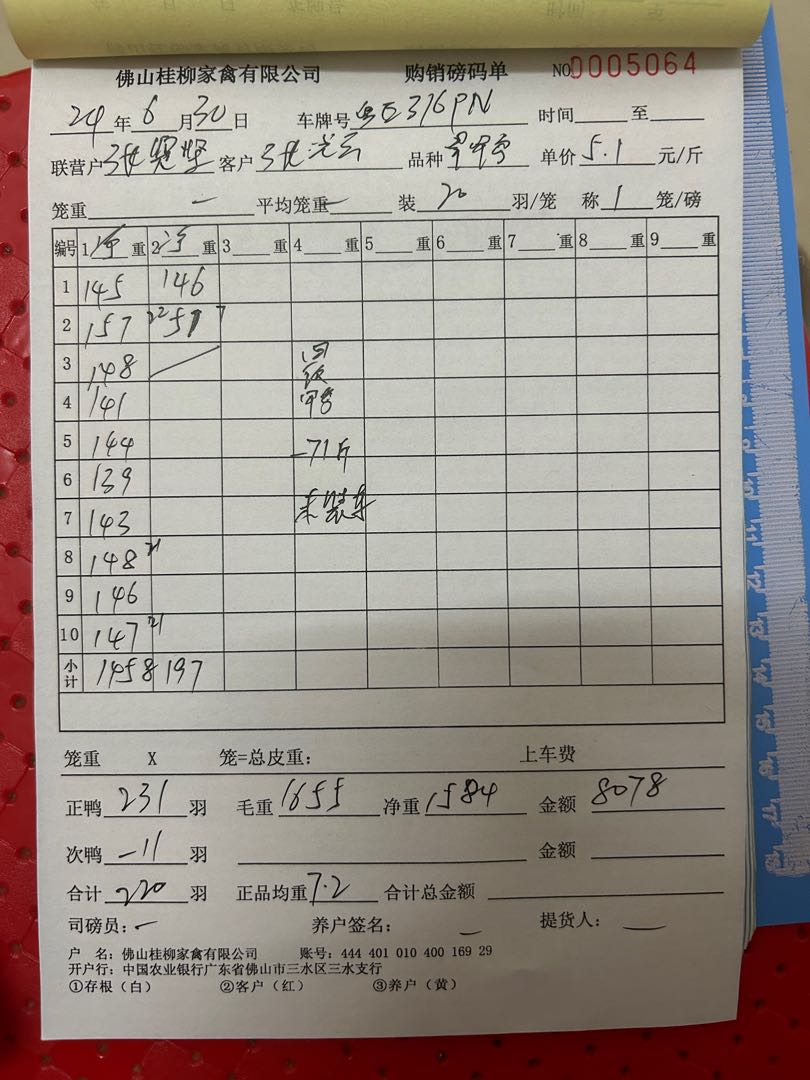 佛山桂柳家禽有限公司 购销磅码单 NO 0005064
24年6月30日 车牌号 316PN 时间 至
联营户 客户 品种 单价5.1元/斤
笼重 一 平均笼重 一 装20羽/笼 称1笼/磅
编号 1净重 2净重 3 重 4 重 5 重 6 重 7 重 8 重 9 重
1 145 146
2 157 22 51 7
3 148 /
4 141
5 144 -71斤
6 139
7 143 未装车
8 148 21
9 146
10 147 21
小计 1458 197
笼重 X 笼=总皮重: 上车费
正鸭231羽 毛重1655 净重1584 金额8078
次鸭-11羽 金额
合计220羽 正品均重7.2 合计总金额
司磅员:一 养户签名: 一 提货人: 一
户 名: 佛山桂柳家禽有限公司 账号: 444 401 010 400 169 29
开户行: 中国农业银行广东省佛山市三水区三水支行
①存根(白) ②客户(红) ③养户(黄)